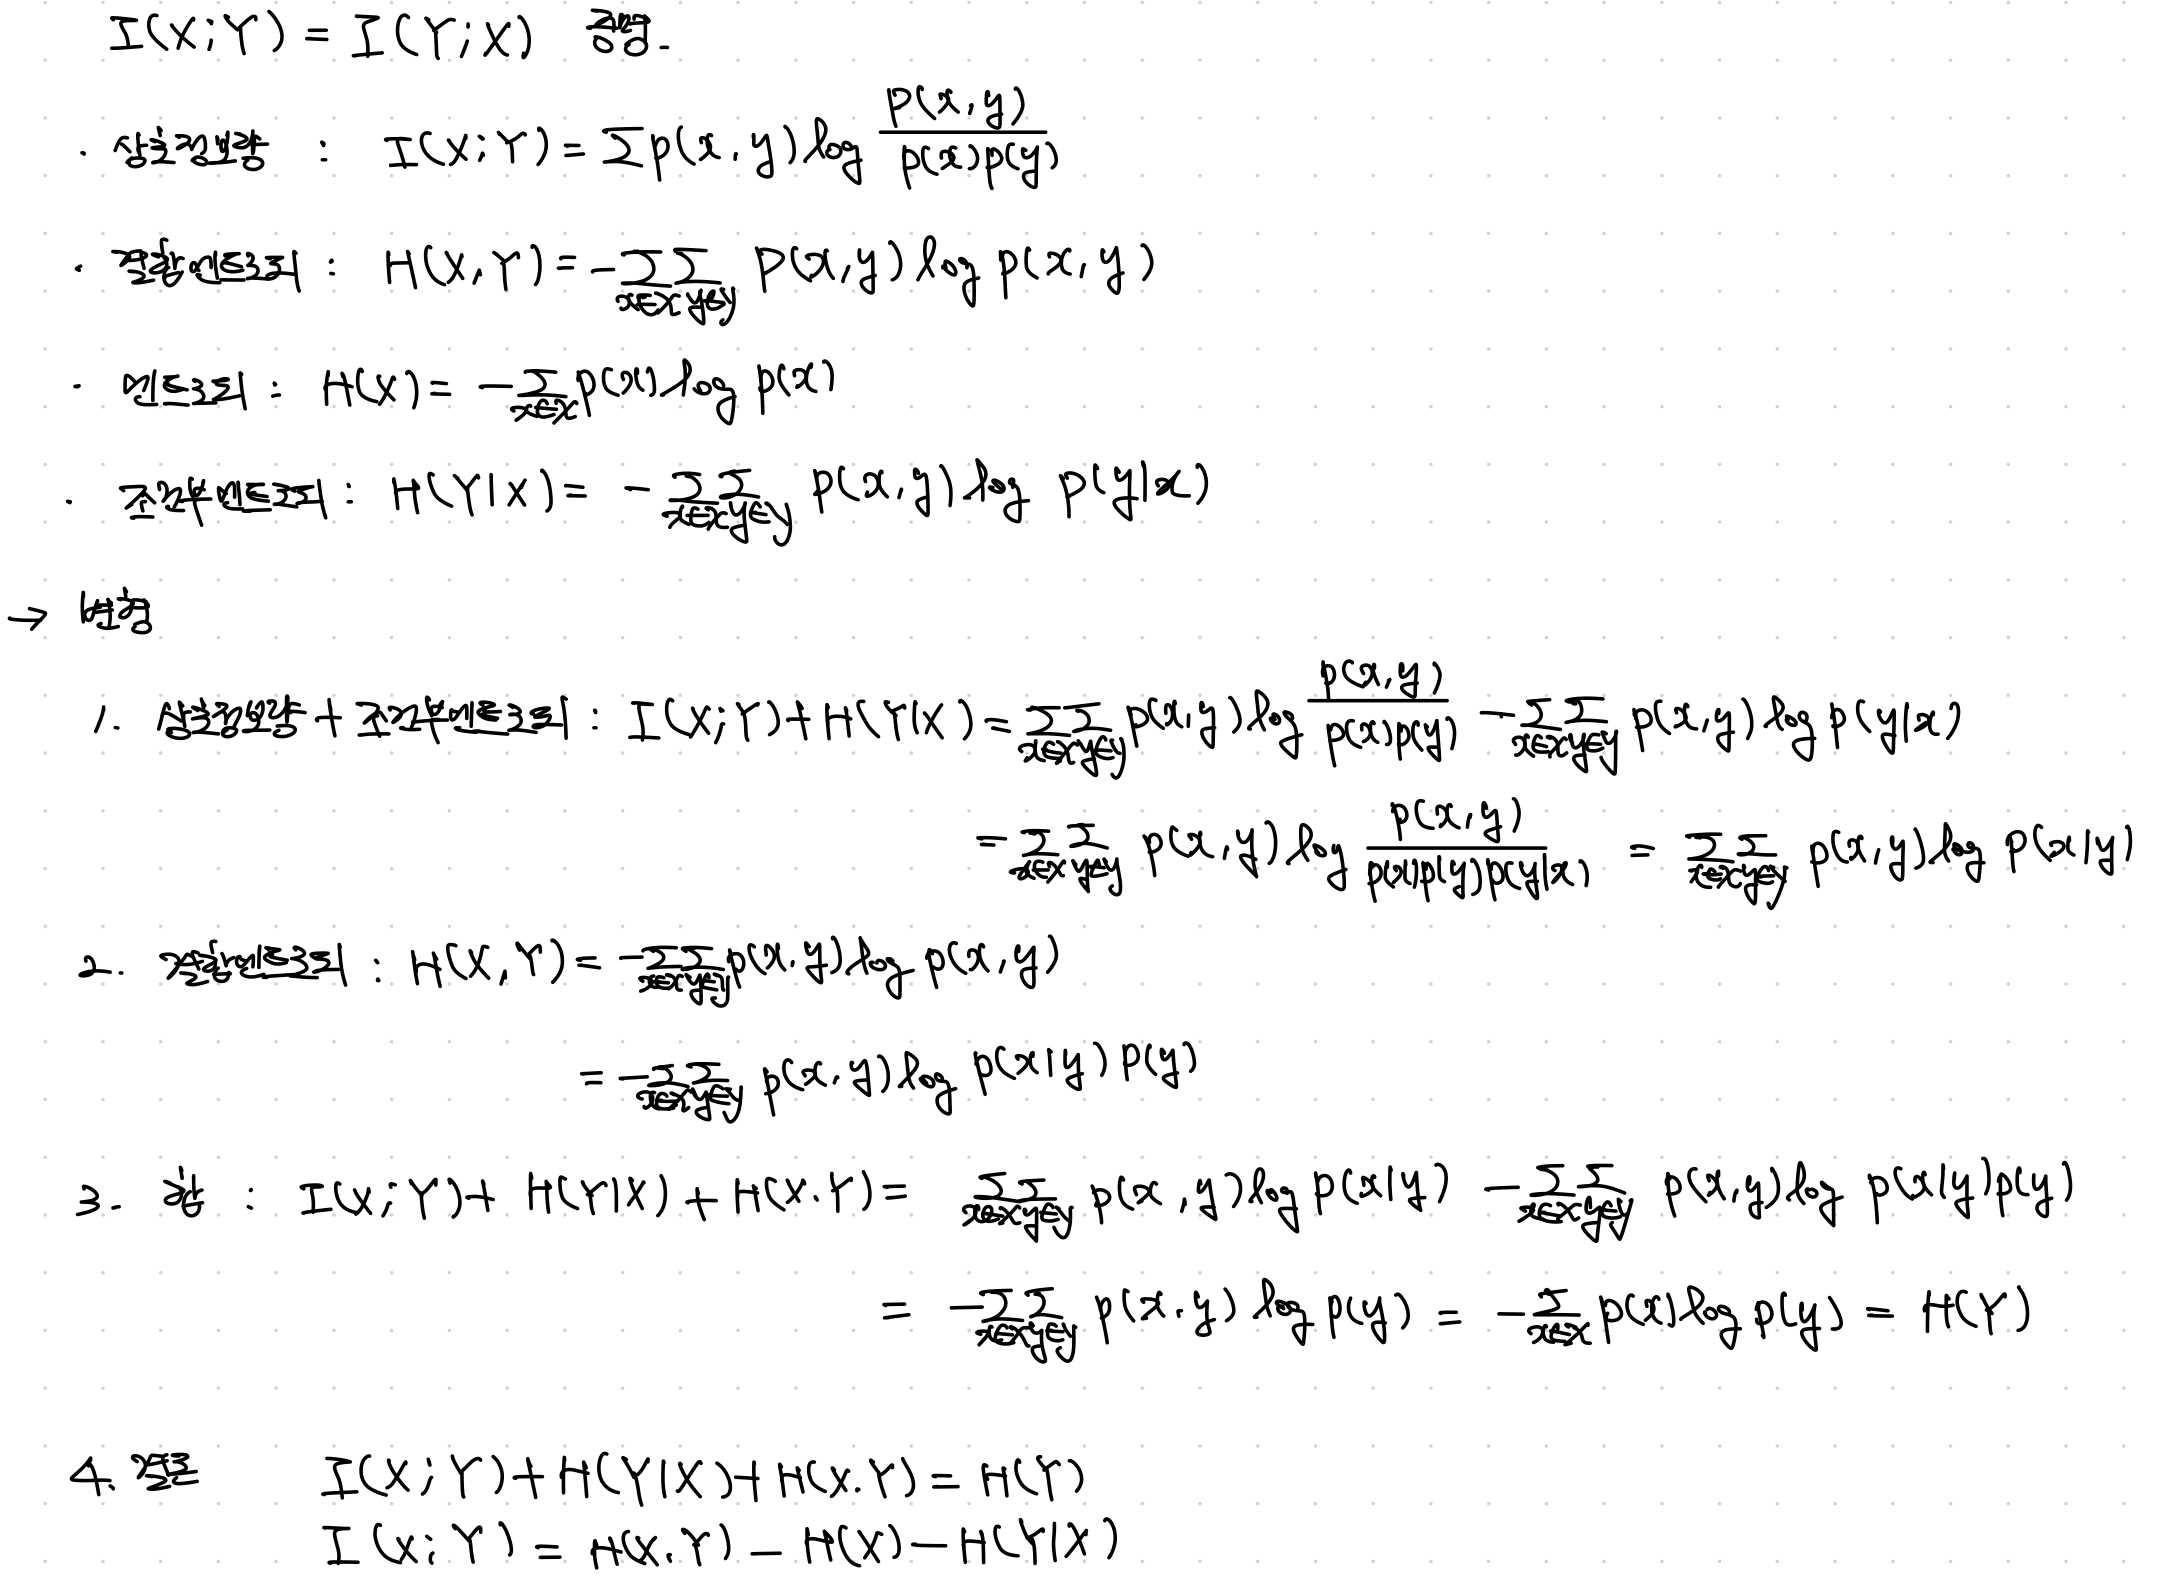 I(X;Y) = I(Y;X) 증명.
· 상호정보량 : I(X;Y) = Σ p(x,y) log p(x,y) / p(x)p(y)
· 결합엔트로피 : H(X,Y) = -Σ_{x∈X} Σ_{y∈Y} P(x,y) log p(x,y)
· 엔트로피 : H(X) = -Σ_{x∈X} p(x) log p(x)
· 조건부엔트로피 : H(Y|X) = -Σ_{x∈X} Σ_{y∈Y} p(x,y) log p(y|x)
→ 변형
1. 상호정보량 + 조건부엔트로피 : I(X;Y) + H(Y|X) = Σ_{x∈X} Σ_{y∈Y} p(x,y) log p(x,y) / p(x)p(y) - Σ_{x∈X} Σ_{y∈Y} p(x,y) log p(y|x)
= Σ_{x∈X} Σ_{y∈Y} p(x,y) log p(x,y) / p(x)p(y)p(y|x) = Σ_{x∈X} Σ_{y∈Y} p(x,y) log p(x|y)
2. 결합엔트로피 : H(X,Y) = -Σ_{x∈X} Σ_{y∈Y} p(x,y) log p(x,y)
= -Σ_{x∈X} Σ_{y∈Y} p(x,y) log p(x|y) P(y)
3. 합 : I(X;Y) + H(Y|X) + H(X.Y) = Σ_{x∈X} Σ_{y∈Y} p(x,y) log p(x|y) - Σ_{x∈X} Σ_{y∈Y} p(x,y) log p(x|y)p(y)
= -Σ_{x∈X} Σ_{y∈Y} p(x,y) log p(y) = -Σ_{x∈X} p(x) log p(y) = H(Y)
4. 결론 I(X;Y) + H(Y|X) + H(X.Y) = H(Y)
I(X;Y) = H(X.Y) - H(X) - H(Y|X)